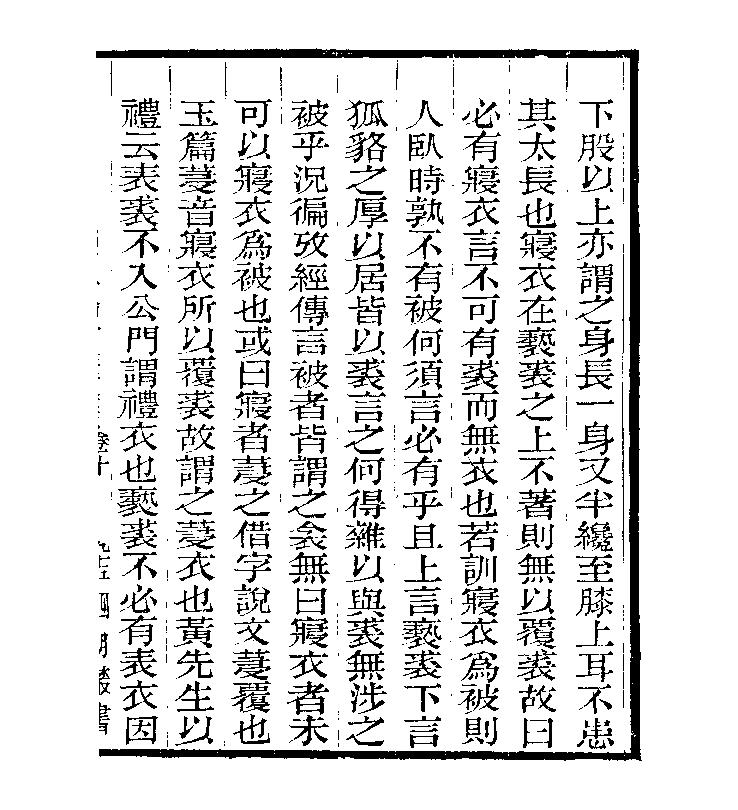 下股以上亦謂之身長一身又半纔至膝上耳不患
其太長也寢衣在褻裘之上不著則無以覆裘故曰
必有寢衣言不可有裘而無衣也若訓寢衣為被則
人臥時孰不有被何須言必有乎且上言褻裘下言
狐貉之厚以居皆以裘言之何得雜以與裘無涉之
被乎況徧攷經傳言被者皆謂之衾無曰寢衣者未
可以寢衣為被也或曰寢者䕾之借字說文䕾覆也
玉篇䕾音寢衣所以覆裘故謂之䕾衣也黃先生以
禮云表裘不入公門謂禮衣也褻裘不必有表衣因
卷十
四明叢書